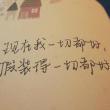 现在我一切都好,
假装得一切都好.